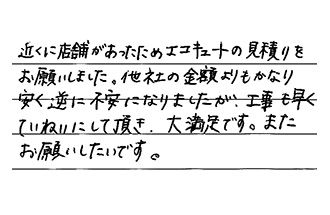 近くに店舗があったためエコキュートの見積りを
お願いしました。他社の金額よりもかなり
安く逆に不安になりましたが、工事も早く
ていねいにして頂き、大満足です。また
お願いしたいです。